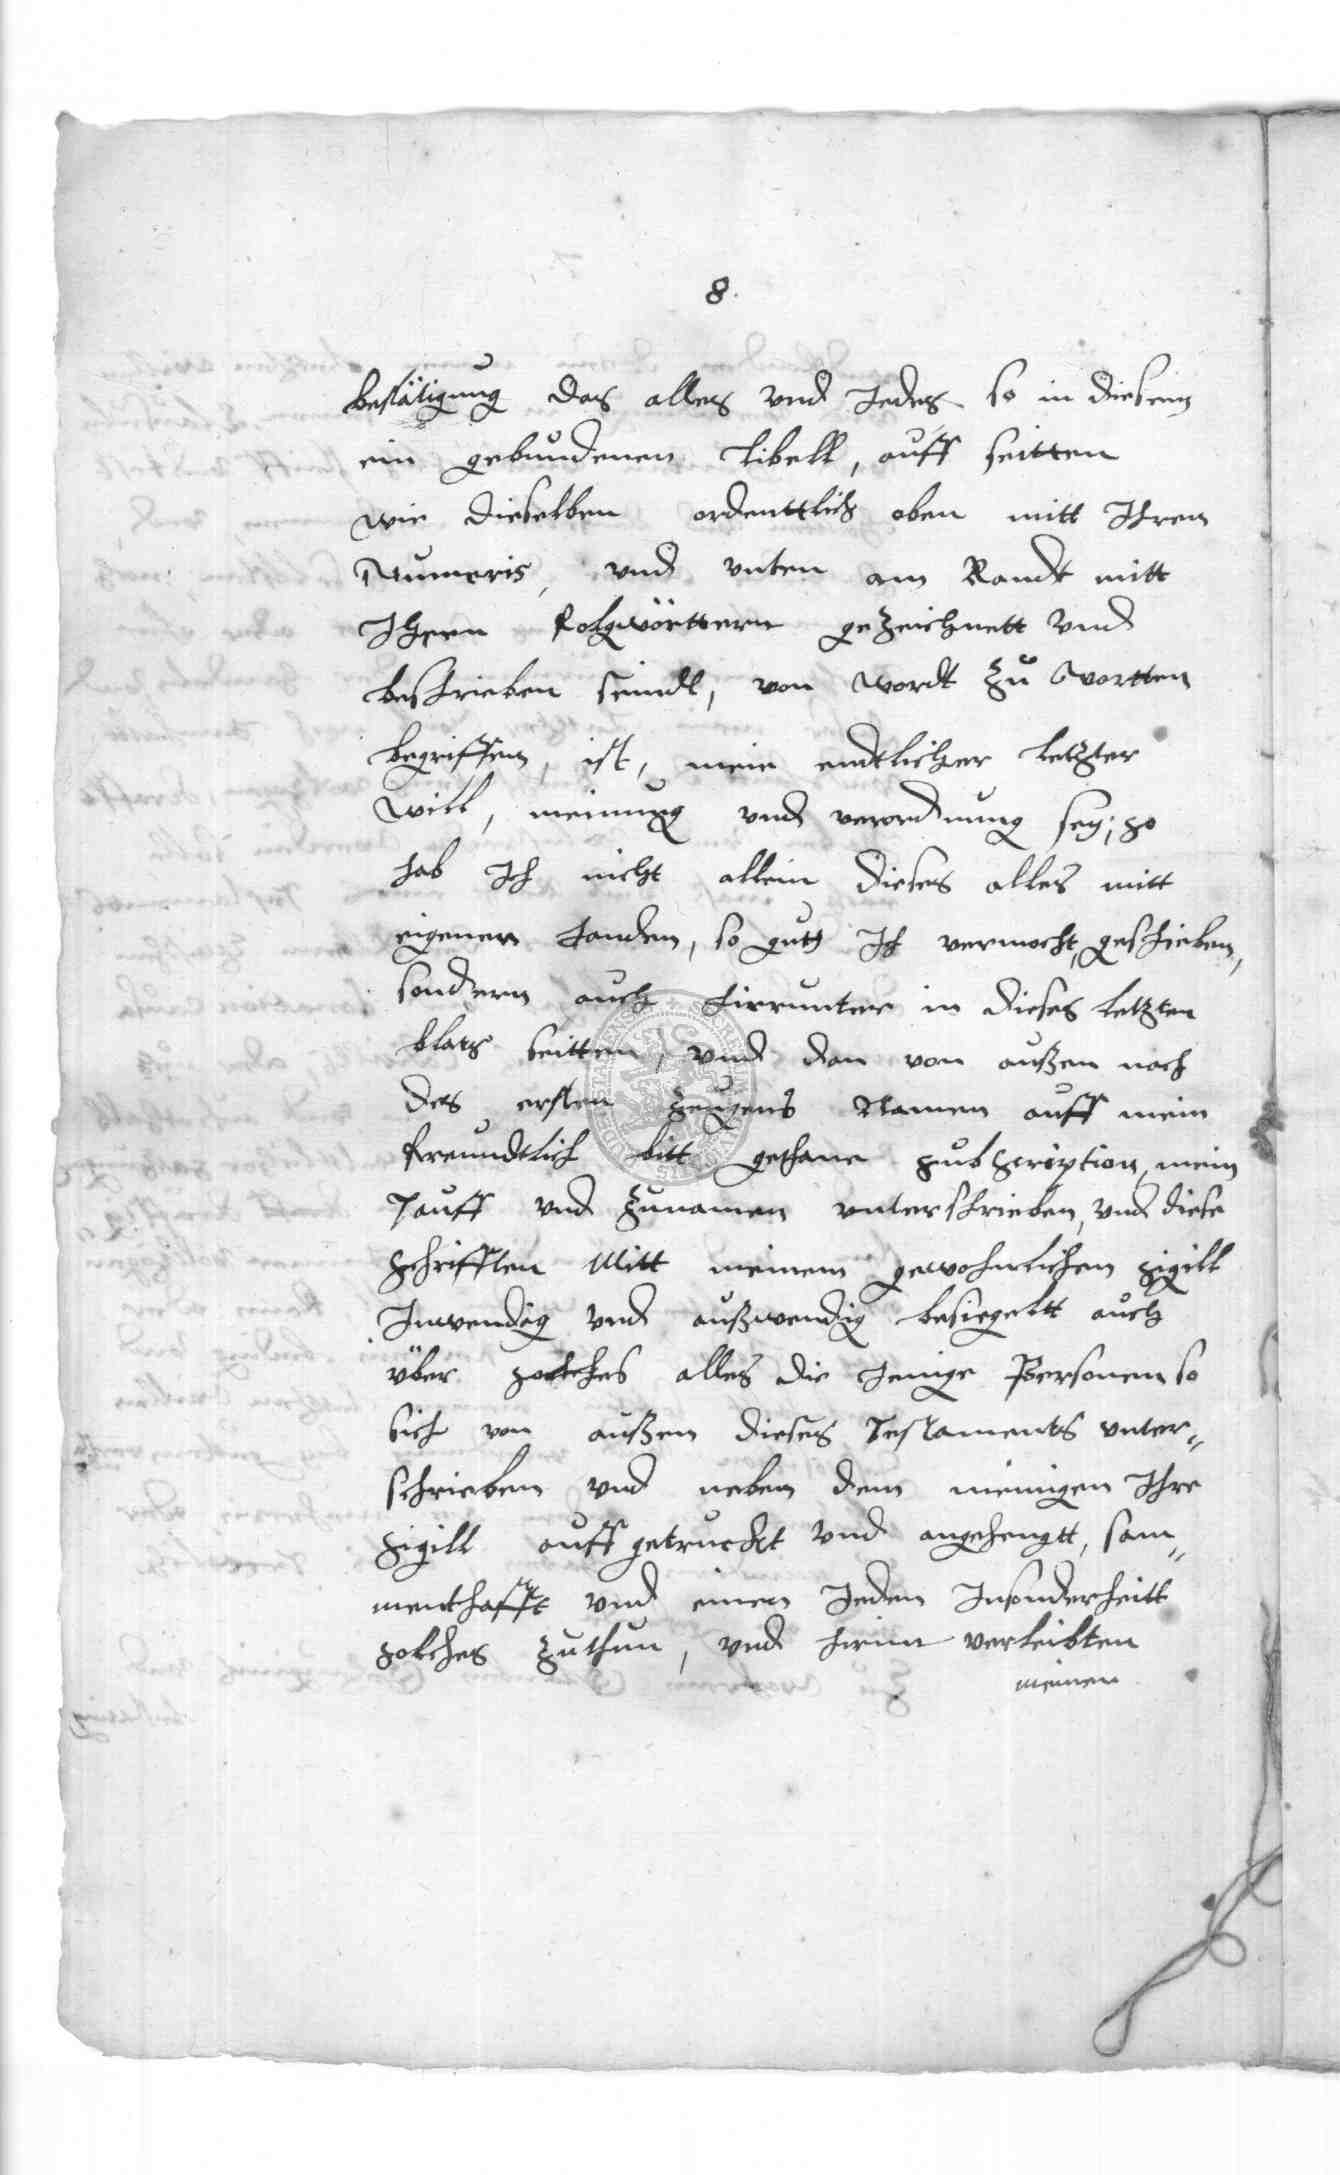 8.
bestätigung das alles vnd Jedes so in diesem
ein gebundenen libell, auff seitten
wie dieselben ordenttlich oben mitt Ihren
Numeris, vnd vnten am Randt mitt
Ihren folgwörttern gezeichnett vnd
beschrieben seindt, von wordt zu wortten
begriffen, ist, mein endtlicher letzter
will, meinung vnd verordnung sey; so
hab Ich nicht allein dieses alles mitt
eigenen Handen, so gutt Ich vermocht, geschrieben,
sondern auch hierunter in dieses letzten
blats seitten, vnd dan von außen nach
des ersten Zeugens Namen auff mein
freundtlich bitt gethane subscription, mein
Tauff vnd Zunamen vnterschrieben, vnd diese
schrifften Mitt meinem gewohnlichen sigill
Inwendig vnd außwendig besiegeltt auch
über solches alles die Jenige Personen so
sich von außen dieses Testaments vnter-
schrieben vnd neben dem meinigen Ihre
sigill auffgetruckt vnd angehengtt, sam-
menthafft vnd einen Jeden Insonderheitt
solches zuthun, vnd hierin verleibten
meinen